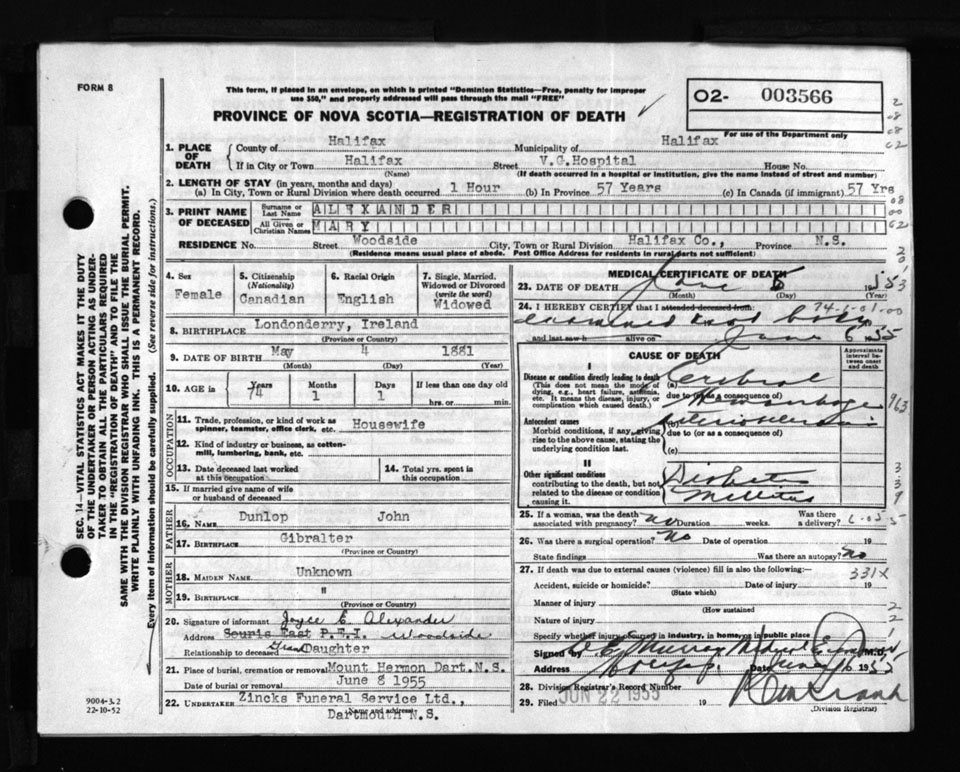 FORM 8
This form, if placed in an envelope, on which is printed "Dominion Statistics—Free, penalty for improper
use $50," and properly addressed will pass through the mail "FREE"
PROVINCE OF NOVA SCOTIA—REGISTRATION OF DEATH
02- 003566
For use of the Department only
SEC. 14—VITAL STATISTICS ACT MAKES IT THE DUTY
OF THE UNDERTAKER OR PERSON ACTING AS UNDER-
TAKER TO OBTAIN ALL THE PARTICULARS REQUIRED
IN THE "REGISTRATION OF DEATH" AND TO FILE THE
SAME WITH THE DIVISION REGISTRAR WHO SHALL ISSUE THE BURIAL PERMIT.
WRITE PLAINLY WITH UNFADING INK. THIS IS A PERMANENT RECORD.
Every item of information should be carefully supplied. (See reverse side for instructions.)
1. PLACE OF DEATH
County of Halifax Municipality of Halifax
If in City or Town Halifax Street V.G.Hospital House No.
(Name) (If death occurred in a hospital or institution, give the name instead of street and number)
2. LENGTH OF STAY (in years, months and days)
(a) In City, Town or Rural Division where death occurred 1 Hour (b) In Province 57 Years (c) In Canada (if immigrant) 57 Yrs
3. PRINT NAME OF DECEASED
Surname or Last Name ALEXANDER
All Given or Christian Names MARY
RESIDENCE No. Street Woodside City, Town or Rural Division Halifax Co., Province N.S.
(Residence means usual place of abode. Post Office Address for residents in rural parts not sufficient)
4. Sex
Female
5. Citizenship (Nationality)
Canadian
6. Racial Origin
English
7. Single, Married, Widowed or Divorced (write the word)
Widowed
8. BIRTHPLACE Londonderry, Ireland
(Province or Country)
9. DATE OF BIRTH May 4 1881
(Month) (Day) (Year)
10. AGE in Years 74 Months 1 Days 1 If less than one day old
hrs. or min.
OCCUPATION
11. Trade, profession, or kind of work as spinner, teamster, office clerk, etc. Housewife
12. Kind of industry or business, as cotten-mill, lumbering, bank, etc.
13. Date deceased last worked at this occupation
14. Total yrs. spent in this occupation
15. If married give name of wife or husband of deceased
FATHER
16. Name Dunlop John
17. Birthplace Gibralter
(Province or Country)
MOTHER
18. Maiden Name Unknown
19. Birthplace "
(Province or Country)
20. Signature of informant Joyce E. Alexander
Address Souris East P.E.I. Woodside
Relationship to deceased Grand Daughter
21. Place of burial, cremation or removal Mount Hermon Dart.N.S.
Date of burial or removal June 8 1955
22. Undertaker Zincks Funeral Service Ltd.,
(Name and address)
Dartmouth N.S.
9004-3.2
22-10-52
MEDICAL CERTIFICATE OF DEATH
23. DATE OF DEATH June 5 1955
(Month) (Day) (Year)
24. I HEREBY CERTIFY that I attended deceased from: 74-1-01-00
examined dead body
and last saw h alive on June 6 1955
CAUSE OF DEATH
Approximate interval between onset and death
I
Disease or condition directly leading to death
(This does not mean the mode of dying, e.g., heart failure, asthenia, etc. It means the disease, injury, or complication which caused death.)
(a) Cerebral
due to (or as a consequence of)
Hemorrhage
963
Antecedent causes
Morbid conditions, if any, giving rise to the above cause, stating the underlying condition last.
(b)
due to (or as a consequence of)
(c)
II
Other significant conditions contributing to the death, but not related to the disease or condition causing it.
Diabetes
Mellitus
25. If a woman, was the death associated with pregnancy? no Duration weeks. Was there a delivery?
26. Was there a surgical operation? no Date of operation 19
State findings Was there an autopsy? no
27. If death was due to external causes (violence) fill in also the following:—
331X
Accident, suicide or homicide? Date of injury 19
(State which)
Manner of injury
(How sustained
Nature of injury
Specify whether injured in industry, in home, or in public place
Signed by Murray Medical Examiner M.D.
Address Halifax Date June 6 1955
28. Division Registrar's Record Number
29. Filed JUN 22 1955 19
(Division Registrar)